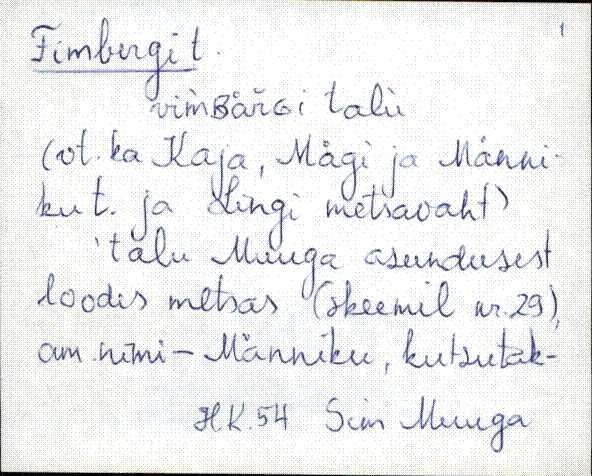 1
Fimbergi t.
vìmʙäŕɢi talù
(vt. ka Kaja, Mägi ja Männi-
ku t. ja Lingi metsavaht)
talu Muuga asundusest
loodes metsas (skeemil nr. 29),
am. nimi - Männiku, kutsutak-
H.K. 54 Sim Muuga